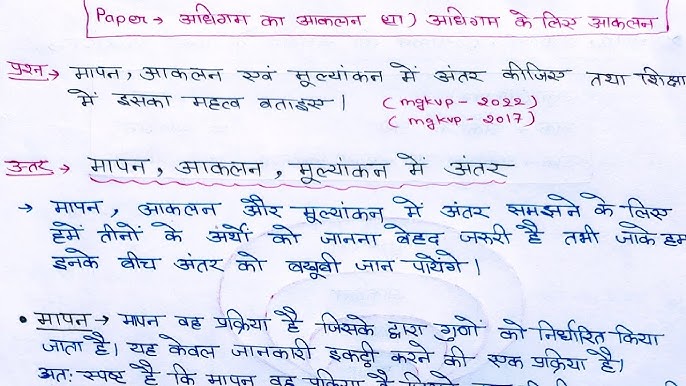 Paper → अधिगम का आकलन या) अधिगम के लिए आकलन
प्रश्न → मापन, आकलन एवं मूल्यांकन में अंतर कीजिए तथा शिक्षा
में इसका महत्व बताइए। (mgkvp - 2022)
(mgkvp - 2017)
उत्तर → मापन, आकलन, मूल्यांकन में अंतर
→ मापन, आकलन और मूल्यांकन में अंतर समझने के लिए
हमें तीनों के अर्थों को जानना बेहद जरुरी है तभी जाके हम
इनके बीच अंतर को बखूबी जान पायेंगे।
• मापन → मापन वह प्रक्रिया है जिसके द्वारा गुणों को निर्धारित किया
जाता है। यह केवल जानकारी इकट्ठी करने की एक प्रक्रिया है।
अतः स्पष्ट है कि मापन वह प्रक्रिया है